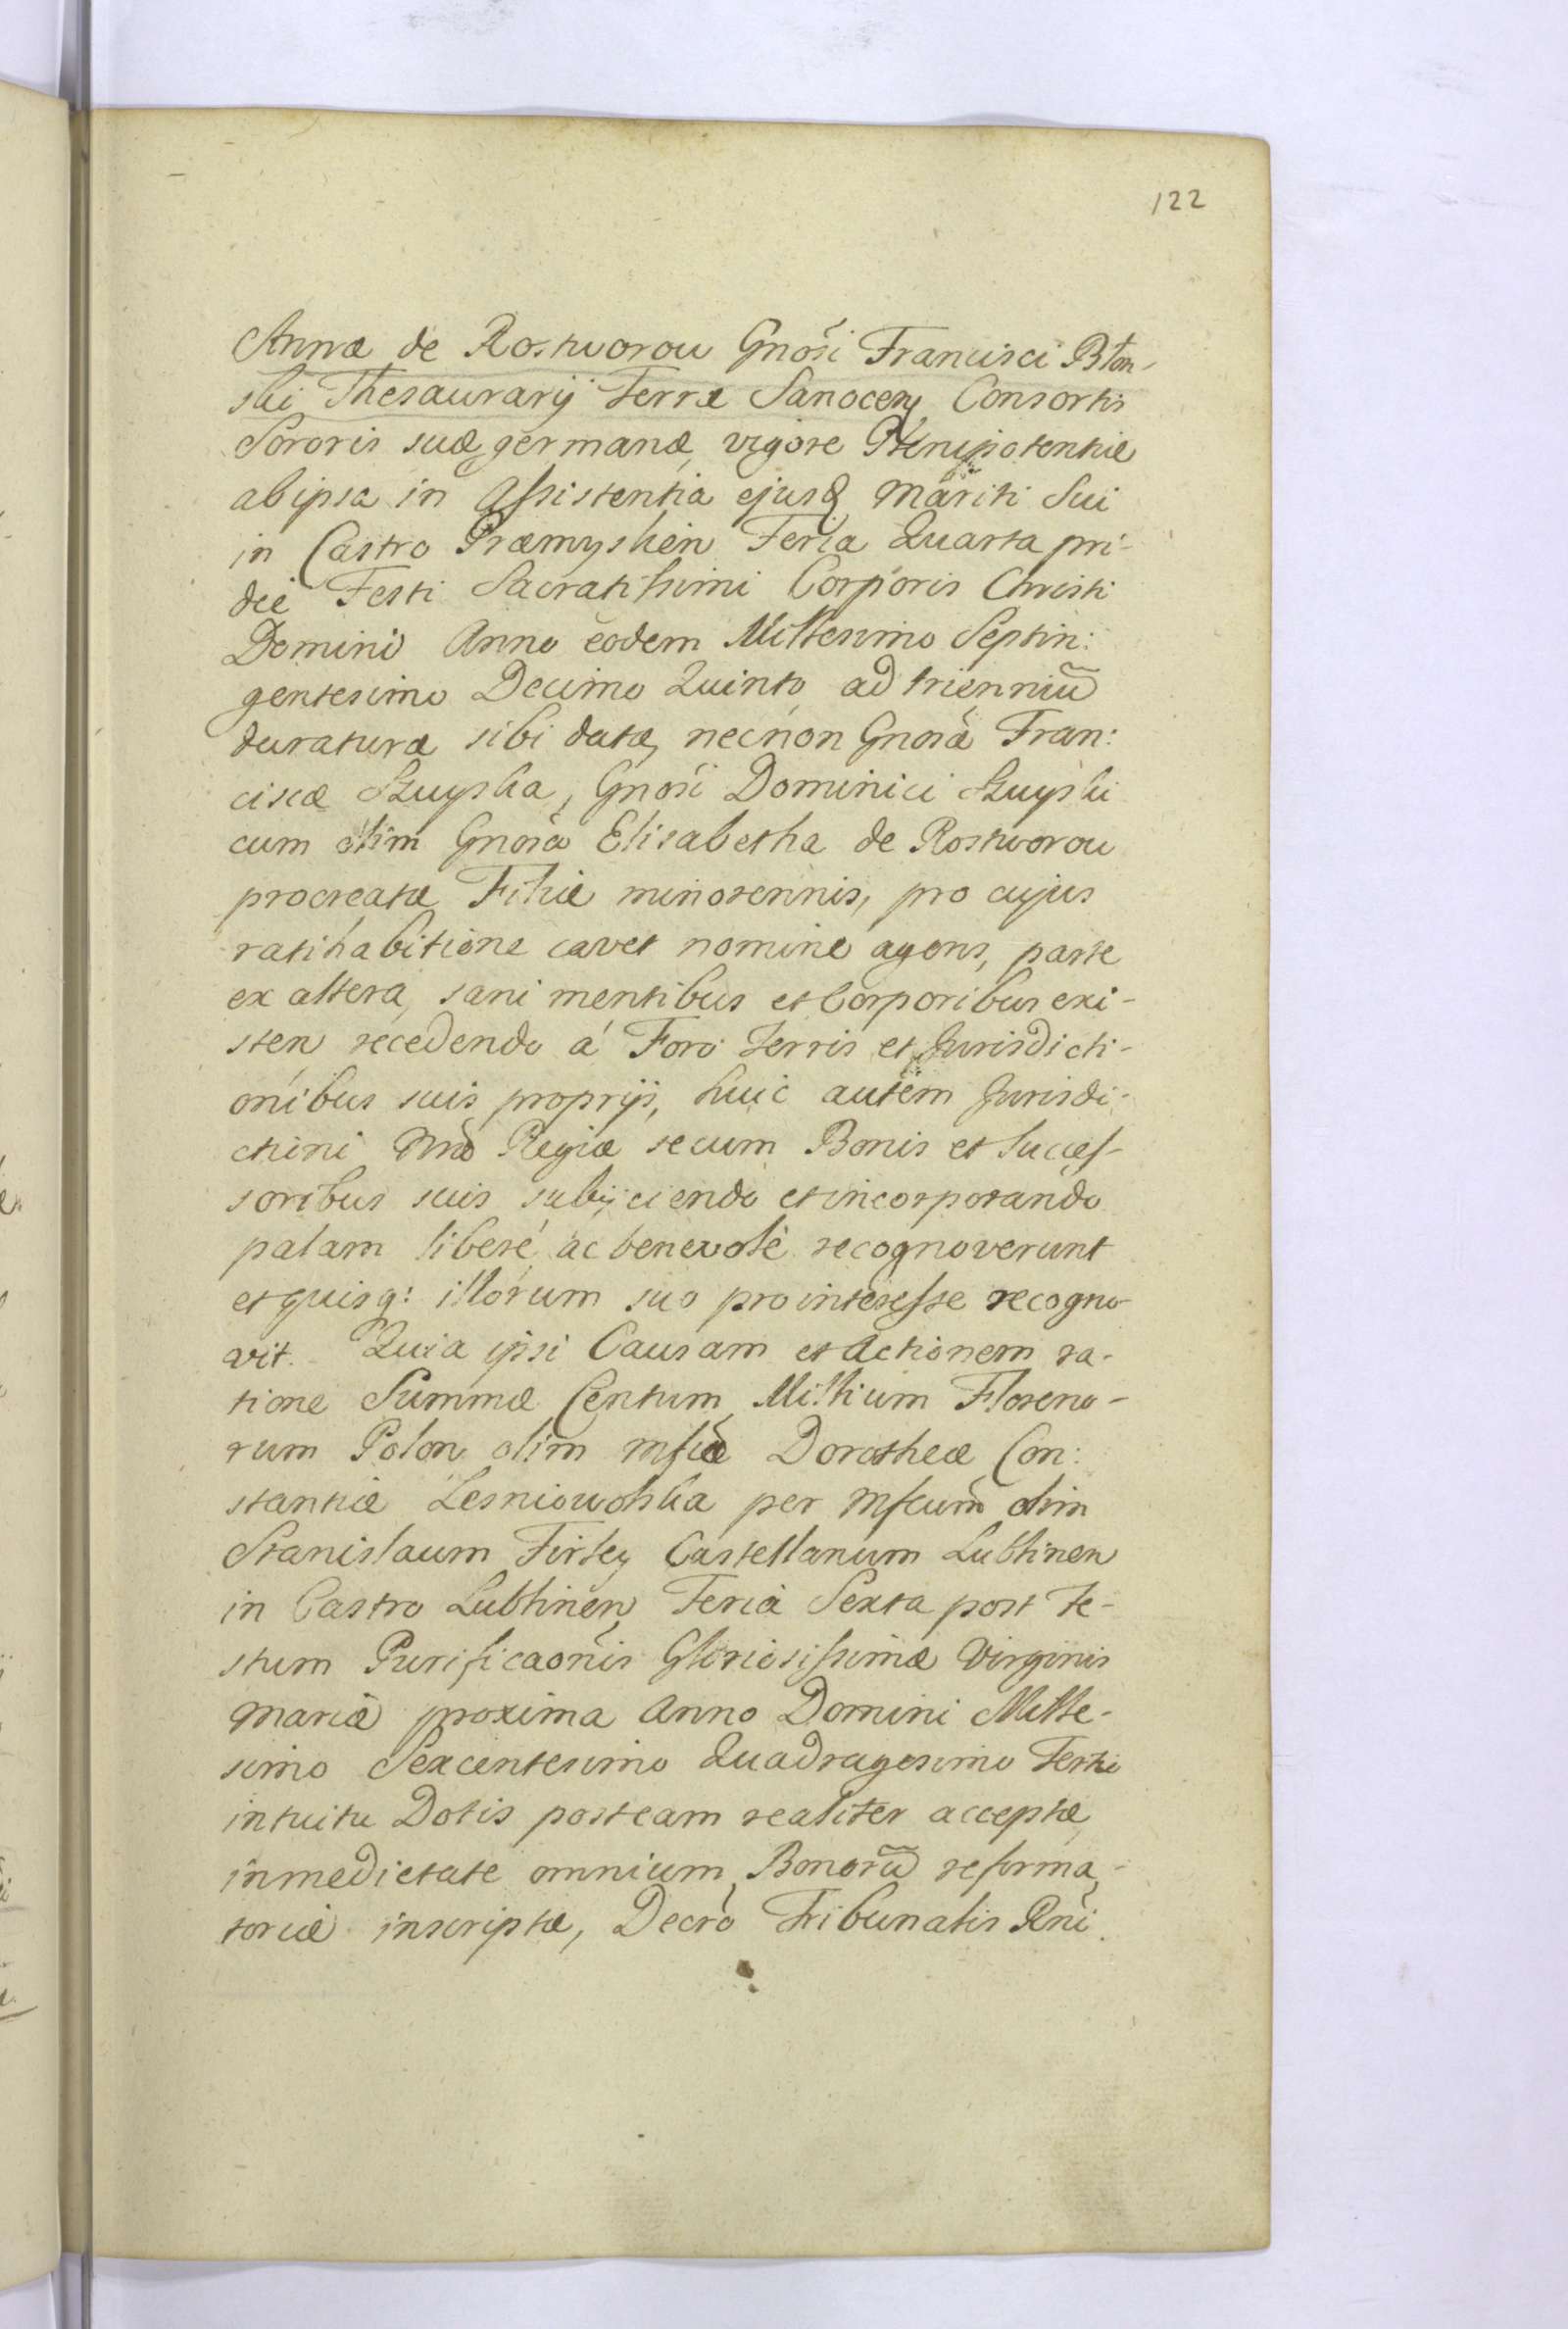 122
Annæ de Rostworow Gnosi Francisci Błon-
ski Thesaurarij Terræ Sanocen Consortis
Sororis suæ germanæ, vigore Plenipotentiæ
ab ipsa in Assistentia ejusd Mariti Sui
in Castro Præmyslien Feria Quarta pri-
die Festi Sacratissimi Corporis Christi
Domini Anno eodem Millesimo Septin:
gentesimo Decimo Quinto ad trienniũ
duraturæ sibi datæ, necnon Gnosæ Fran:
ciscæ Szuyska, Gnosi Dominici Szuyski
cum olim Gnosa Elisabetha de Rostworow
procreatæ Filiæ minorennis, pro cujus
ratihabitione cavet nomine agens, parte
ex altera, sani mentibus et Corporibus exi-
sten recedendo á Foro Terris et Jurisdicti-
onibus suis proprijs, huic autem Jurisdi-
ctioni Regiæ se cum Bonis et Succes-
soribus suis subijciendo et incorporando
palam liberé ac benevolé recognoverunt
et quisq: illorum suo pro interesse recogno
vit. Quia ipsi Causam et Actionem ra-
tione Summæ Centum Millium Floreno-
rum Polon olim Mfcæ Dorotheæ Con:
stantiæ Lesniowolska per Mfcum olim
Stanislaum Firley Castellanum Lublinen
in Castro Lublinen Feria Sexta post Fe-
stum Purificaonis Gloriosissimæ Virginis
Mariæ proxima Anno Domini Mille-
simo Sexcentesimo Quadragesimo Tertio
intuitu Dotis post eam realiter acceptæ,
in medietate omnium Bonorũ reforma-
toriæ inscriptæ, Decro Tribunalis Rni